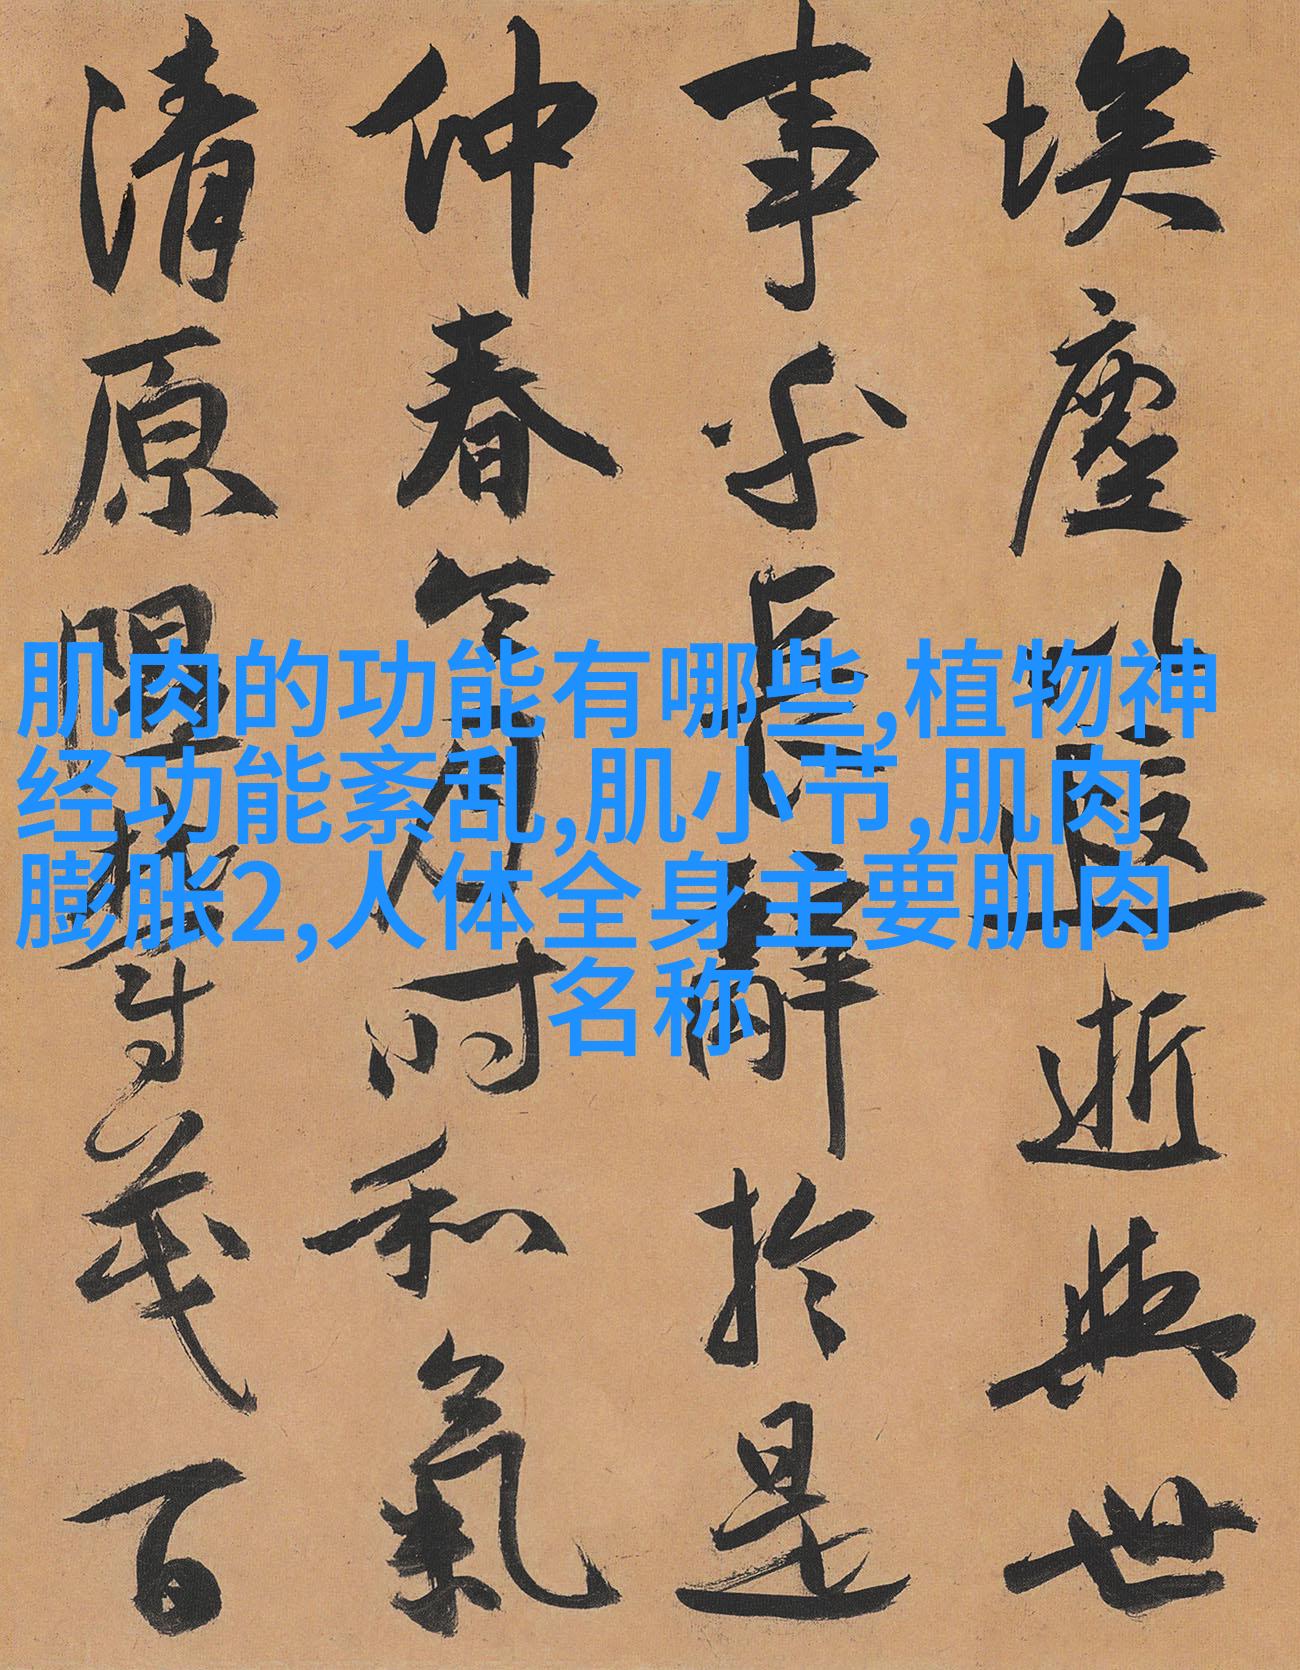 埃塵以遐逝與世
事乎長辭於是
仲春令月時和氣
清原隰鬱茂百
肌肉的功能有哪些,植物神
经功能紊乱,肌小节,肌肉
膨胀2,人体全身主要肌肉
名称